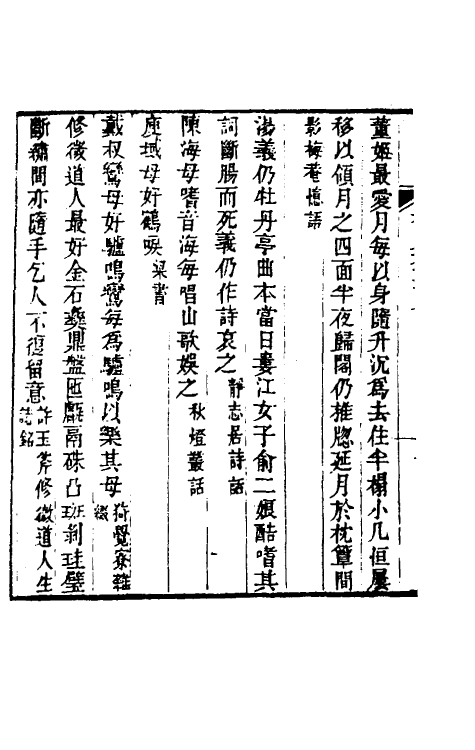 董姬最愛月每以身隨升沉爲去住半榻小几恒屢
移以領月之四面半夜歸閣仍推牕延月於枕簟間
影梅菴憶語
湯義仍牡丹亭曲本當日婁江女子俞二娘酷嗜其
詞斷腸而死義仍作詩哀之靜志居詩話
陳海母嗜音海每唱山歌娛之秋燈叢話
庾域母好鶴唳梁書
戴叔鸞母好驢鳴鸞每爲驢鳴以樂其母猗覺寮雜
綴
修微道人最好金石彝鼎盤匜甗鬲硃凸斑剝珪璧
斷纇間亦隨手乞人不復留意許玉斧修微道人生
誌銘